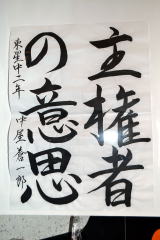 主権者
の意思
東星中二年
中屋善一郎